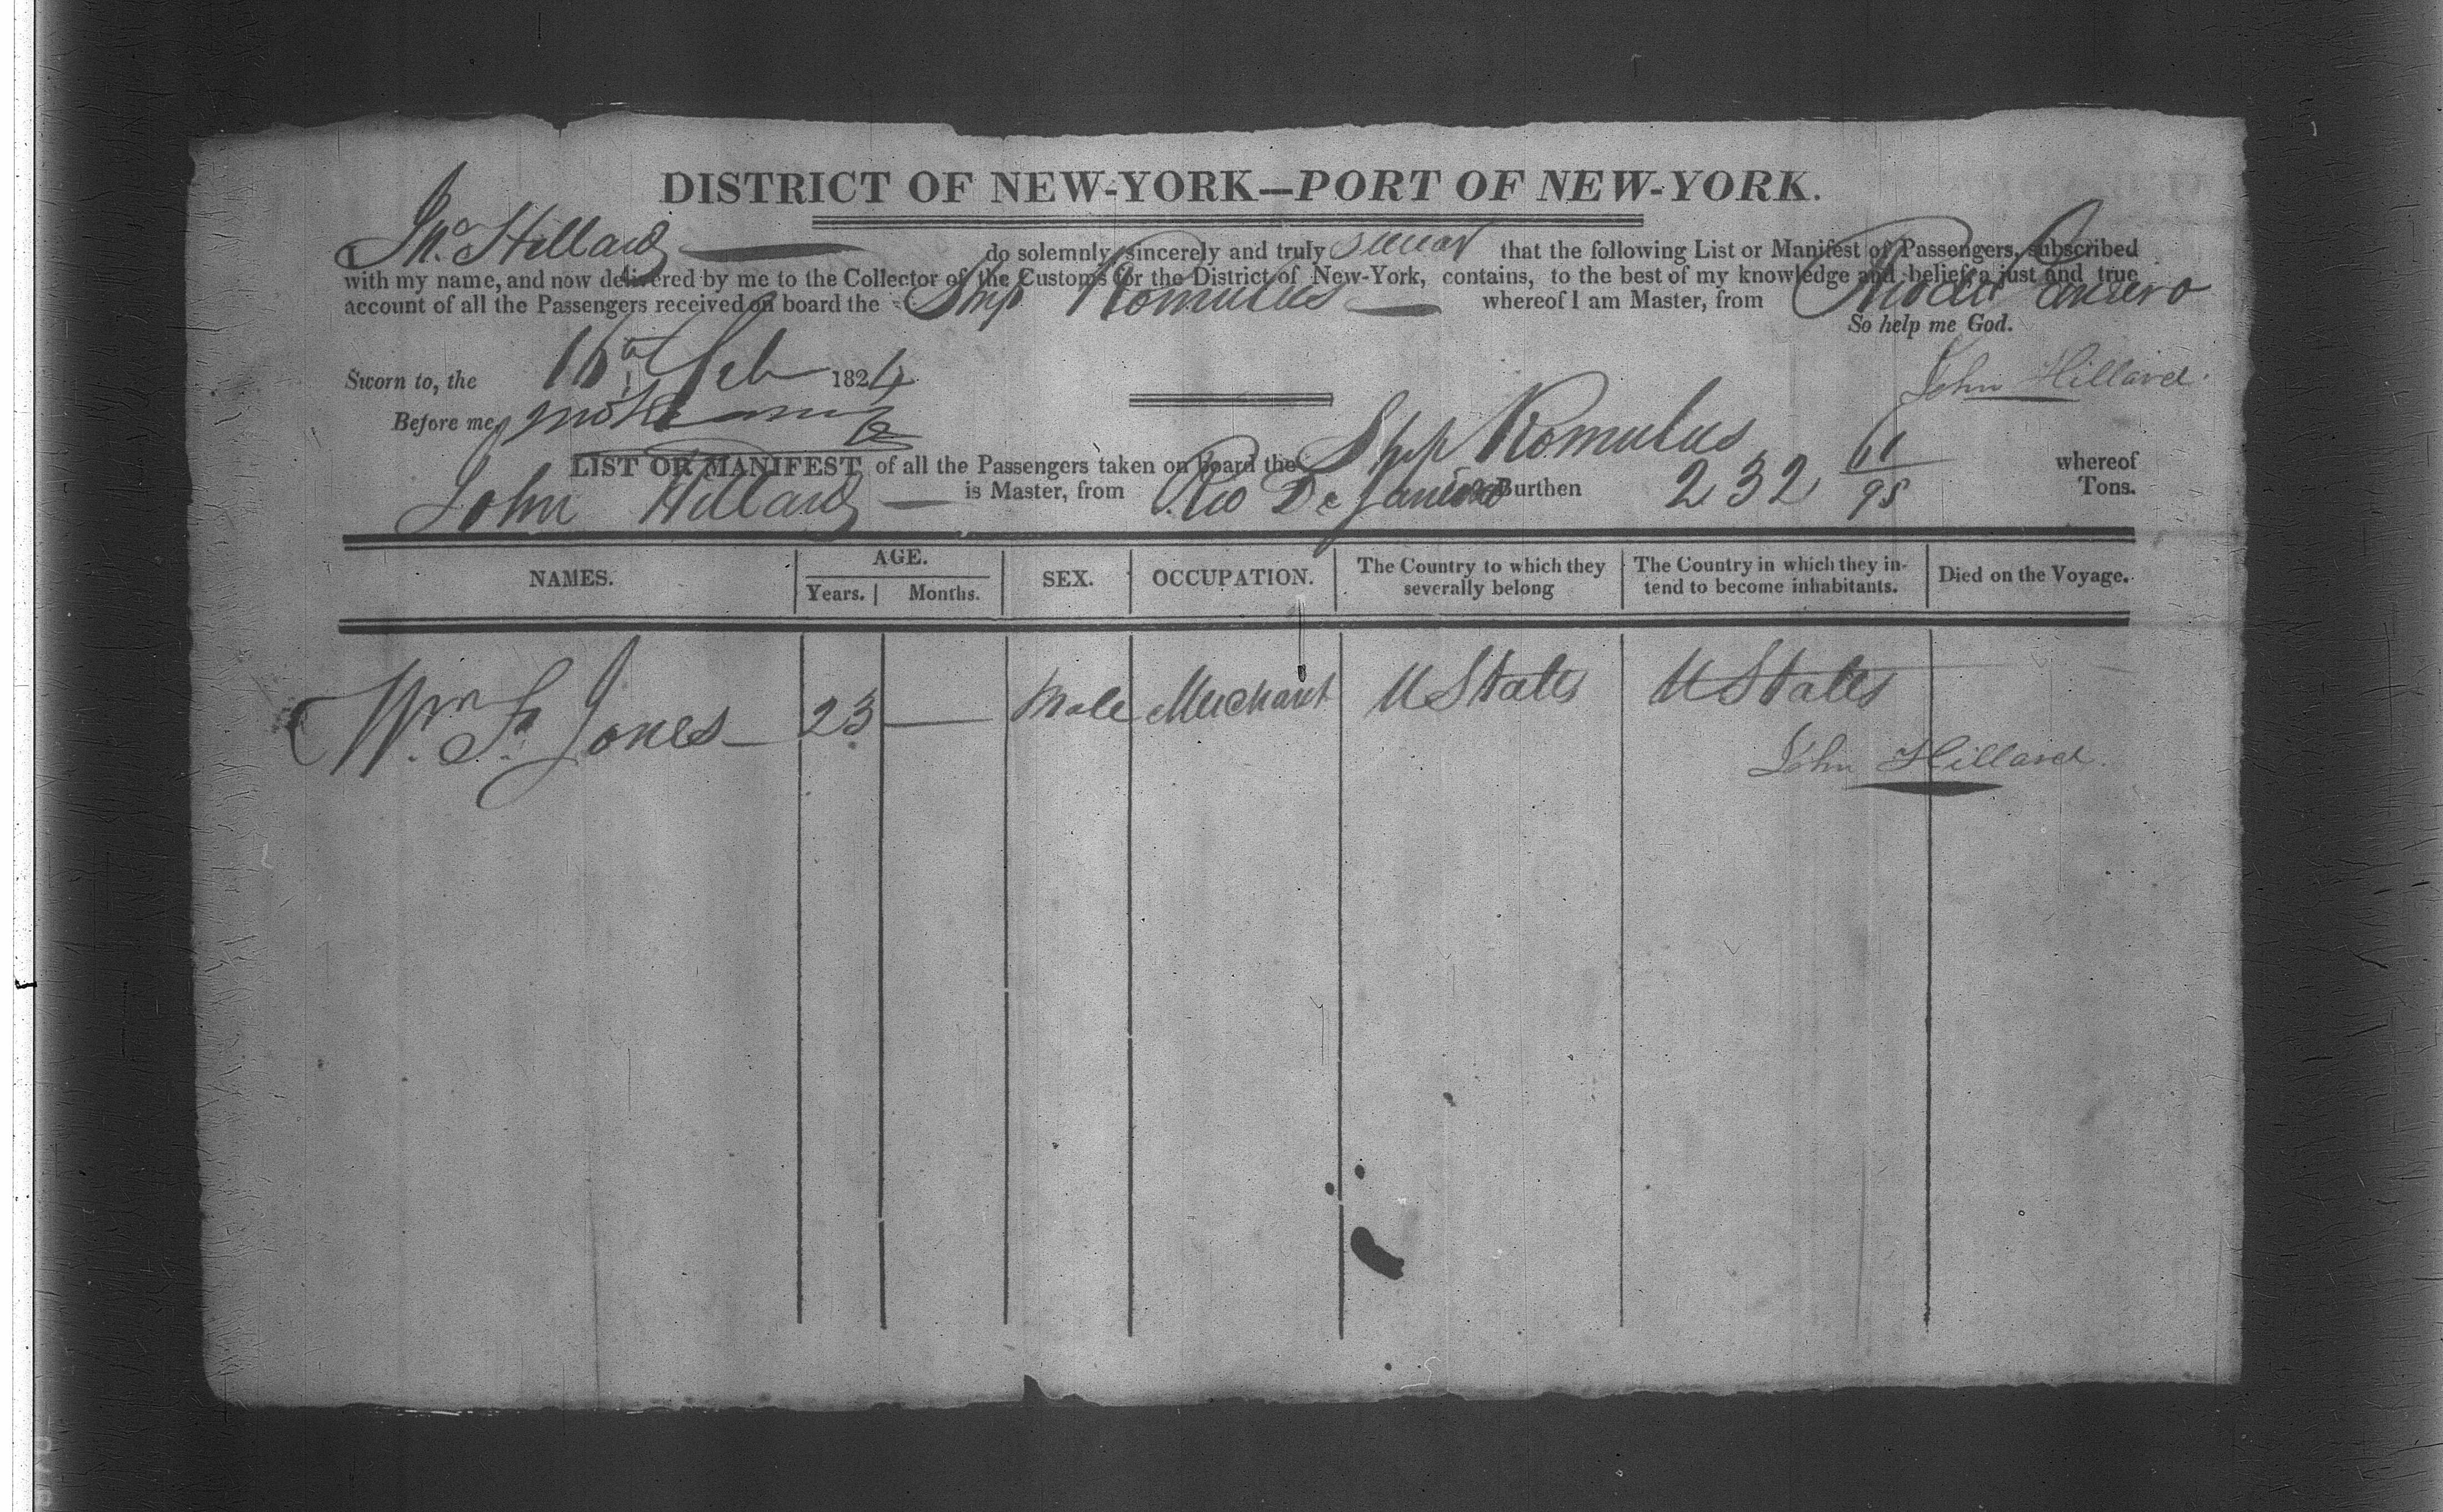 DISTRICT OF NEW-YORK—PORT OF NEW-YORK.
I Jno. Hillard do solemnly, sincerely and truly swear that the following List or Manifest of Passengers, subscribed
with my name, and now delivered by me to the Collector of the Customs for the District of New-York, contains, to the best of my knowledge and belief, a just and true
account of all the Passengers received on board the Ship Romulus whereof I am Master, from Rio de Janiero
So help me God.
Sworn to, the 16th Feb 1824
John Hillard.
Before me,
LIST OR MANIFEST of all the Passengers taken on board the Ship Romulus whereof
John Hillard is Master, from Rio De Janiero Burthen 232 61/95 Tons.
NAMES. AGE. SEX. OCCUPATION. The Country to which they severally belong The Country in which they intend to become inhabitants. Died on the Voyage.
Years. Months.
Wm. Jones 23 — Male Merchant U States U States
John Hillard.